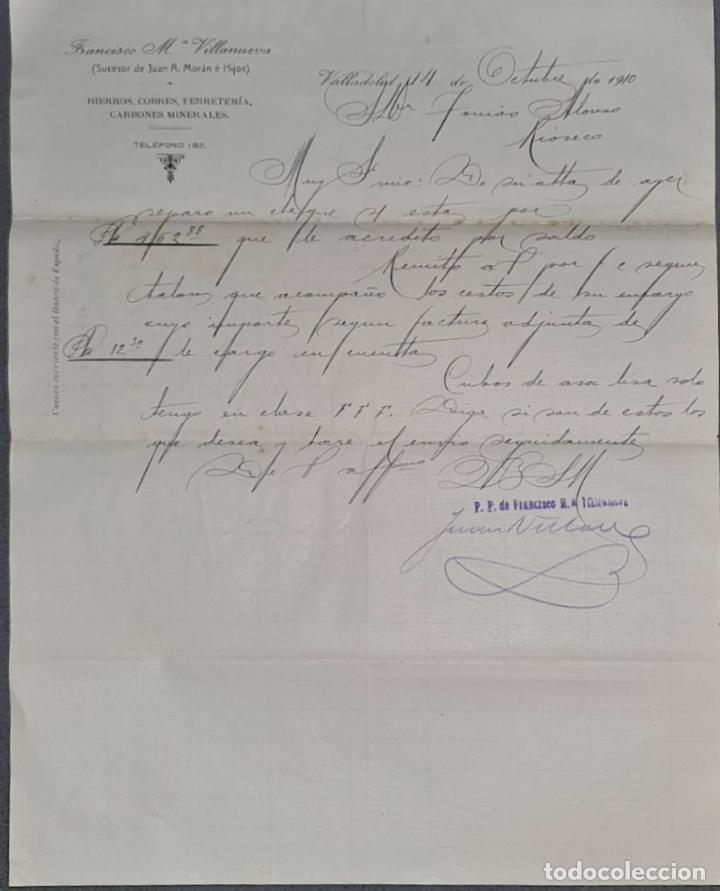 Francisco M.ª Villanueva
(Sucesor de Juan A. Morán é Hijos)
HIERROS, COBRES, FERRETERÍA,
CARBONES MINERALES.
TELÉFONO 182.
Valladolid 14 de Octubre de 1910
Sr Tomás Alonso
Rioseco
Muy Sr mio: De su atta de ayer
separo un cheque s/ esta por
Pts 462 88 que le acredito por saldo
Remito á V por f c segun
talon que acompaño los cestos de su encargo
cuyo importe segun factura adjunta de
Pts 12 50 le cargo en cuenta
Cubos de asa lisa solo
tengo en clase F F F. Diga si son de estos los
que desea y hare el envio seguidamente
De V affmo
QBSM
P. P. de Francisco M.ª Villanueva
Juan
Cuenta corriente con el Banco de España.
todocoleccion